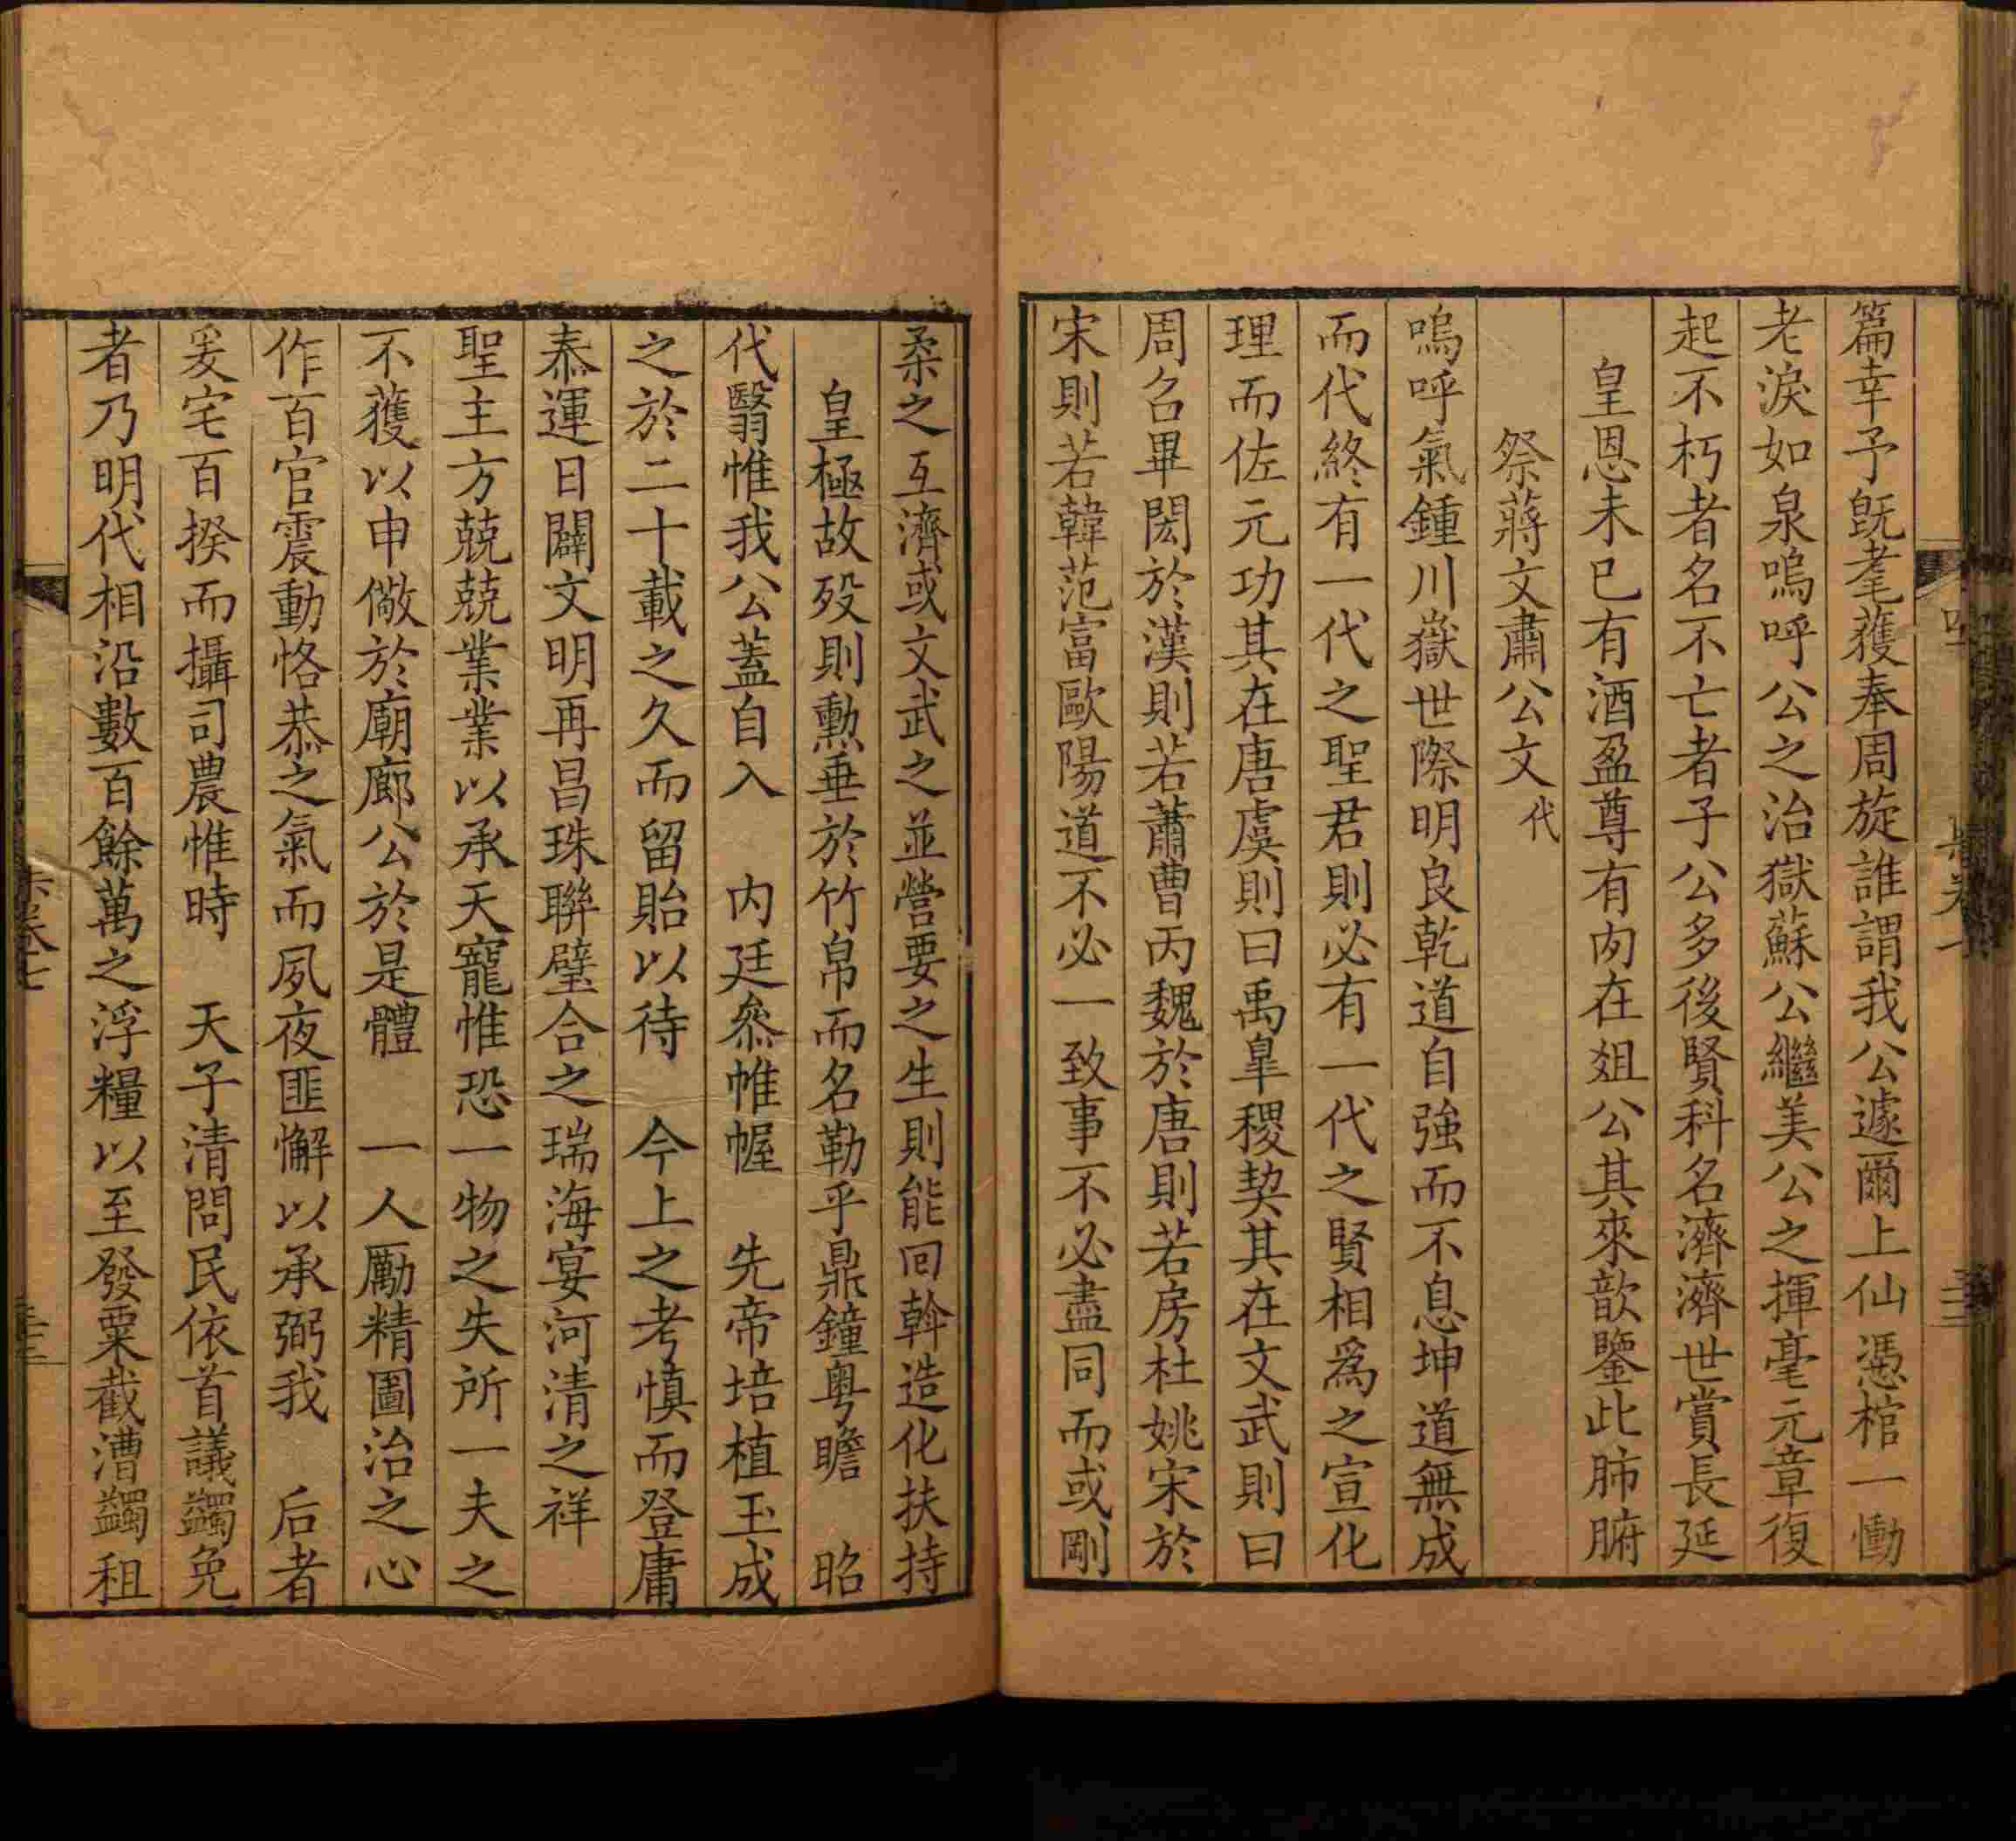 篇幸予旣耄獲奉周旋誰謂我公遽爾上仙憑棺一慟
老淚如泉嗚呼公之治獄蘇公繼美公之揮毫元章復
起不朽者名不亡者子公多後賢科名濟濟世賞長延
皇恩未已有酒盈尊有肉在俎公其來歆鑒此肺腑
祭蔣文肅公文代
嗚呼氣鍾川嶽世際明良乾道自強而不息坤道無成
而代終有一代之聖君則必有一代之賢相爲之宣化
理而佐元功其在唐虞則曰禹皐稷契其在文武則曰
周召畢閎於漢則若蕭曹丙魏於唐則若房杜姚宋於
宋則若韓范富歐陽道不必一致事不必盡同而或剛
柔之互濟或文武之並營要之生則能回斡造化扶持
皇極故歿則勲垂於竹帛而名勒乎鼎鐘粤瞻 昭
代翳惟我公蓋自入 内廷叅帷幄 先帝培植玉成
之於二十載之久而留貽以待 今上之考慎而登庸
泰運日闢文明再昌珠聨璧合之瑞海宴河清之祥
聖主方兢兢業業以承天寵惟恐一物之失所一夫之
不獲以申儆於廟廊公於是體 一人勵精圖治之心
作百官震動恪恭之氣而夙夜匪懈以承弼我 后者
爰宅百揆而攝司農惟時 天子清問民依首議蠲免
者乃明代相沿數百餘萬之浮糧以至發粟截漕蠲租